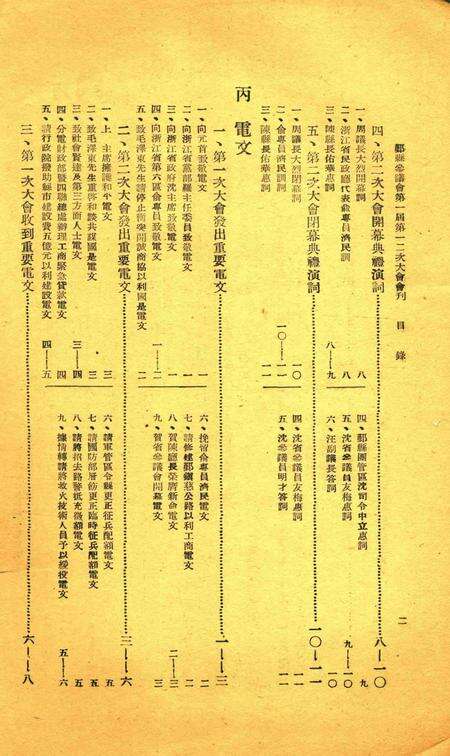 鄞縣參議會第一屆第一二次大會會刊 目錄 二
四、第二次大會開幕典禮演詞 八—一〇
一、周議長大烈開幕詞 八
二、浙江省民政廳代表兪專員濟民訓 八
三、陳縣長佑華惠詞 八—九
四、鄞縣團管區沈司令中立惠詞 九
五、沈省參議員友梅惠詞 九—一〇
六、汪副議長答詞 一〇
五、第二次大會閉幕典禮演詞 一〇—一一
一、周議長大烈閉幕詞 一〇
二、兪專員濟民訓詞 一〇—一一
三、陳縣長佑華惠詞 一一
四、沈省參議員友梅惠詞 一一
五、沈參議員明才答詞 一一
丙 電文
一、第一次大會發出重要電文 一—三
一、向元首致敬電文 一
二、向浙江省黨部羅主任委員致敬電文 一
三、向浙江省政府沈主席致敬電文 一
四、向浙江省第六區兪專員致敬電文 一—二
五、致毛澤東先生請停止衝突開誠商協以利國是電文 二
六、挽留兪專員濟民電文 二
七、請修建鄞鎮慈公路以利工商電文 二
八、賀陳廳長榮膺新命電文 二—三
九、賀省參議會開幕電文 三
二、第二次大會發出重要電文 三—六
一、上 主席擁護和平電文 三
二、致毛澤東先生重啓和談共謀國是電文 三
三、致社會賢達及第三方面人士電文 三—四
四、分電財政部暨四聯總處辦理工商緊急貸款電文 四
五、請行政院撥助縣市建設費五億元以利建設電文 四—五
六、請軍管區令縣更正征兵配額電文 五
七、請國防部層飭更正臨時征兵配額電文 五
八、請將招去路警抵充徵額電文 五
九、據情轉請將救火技術人員予以緩役電文 五—六
三、第一次大會收到重要電文 六—八